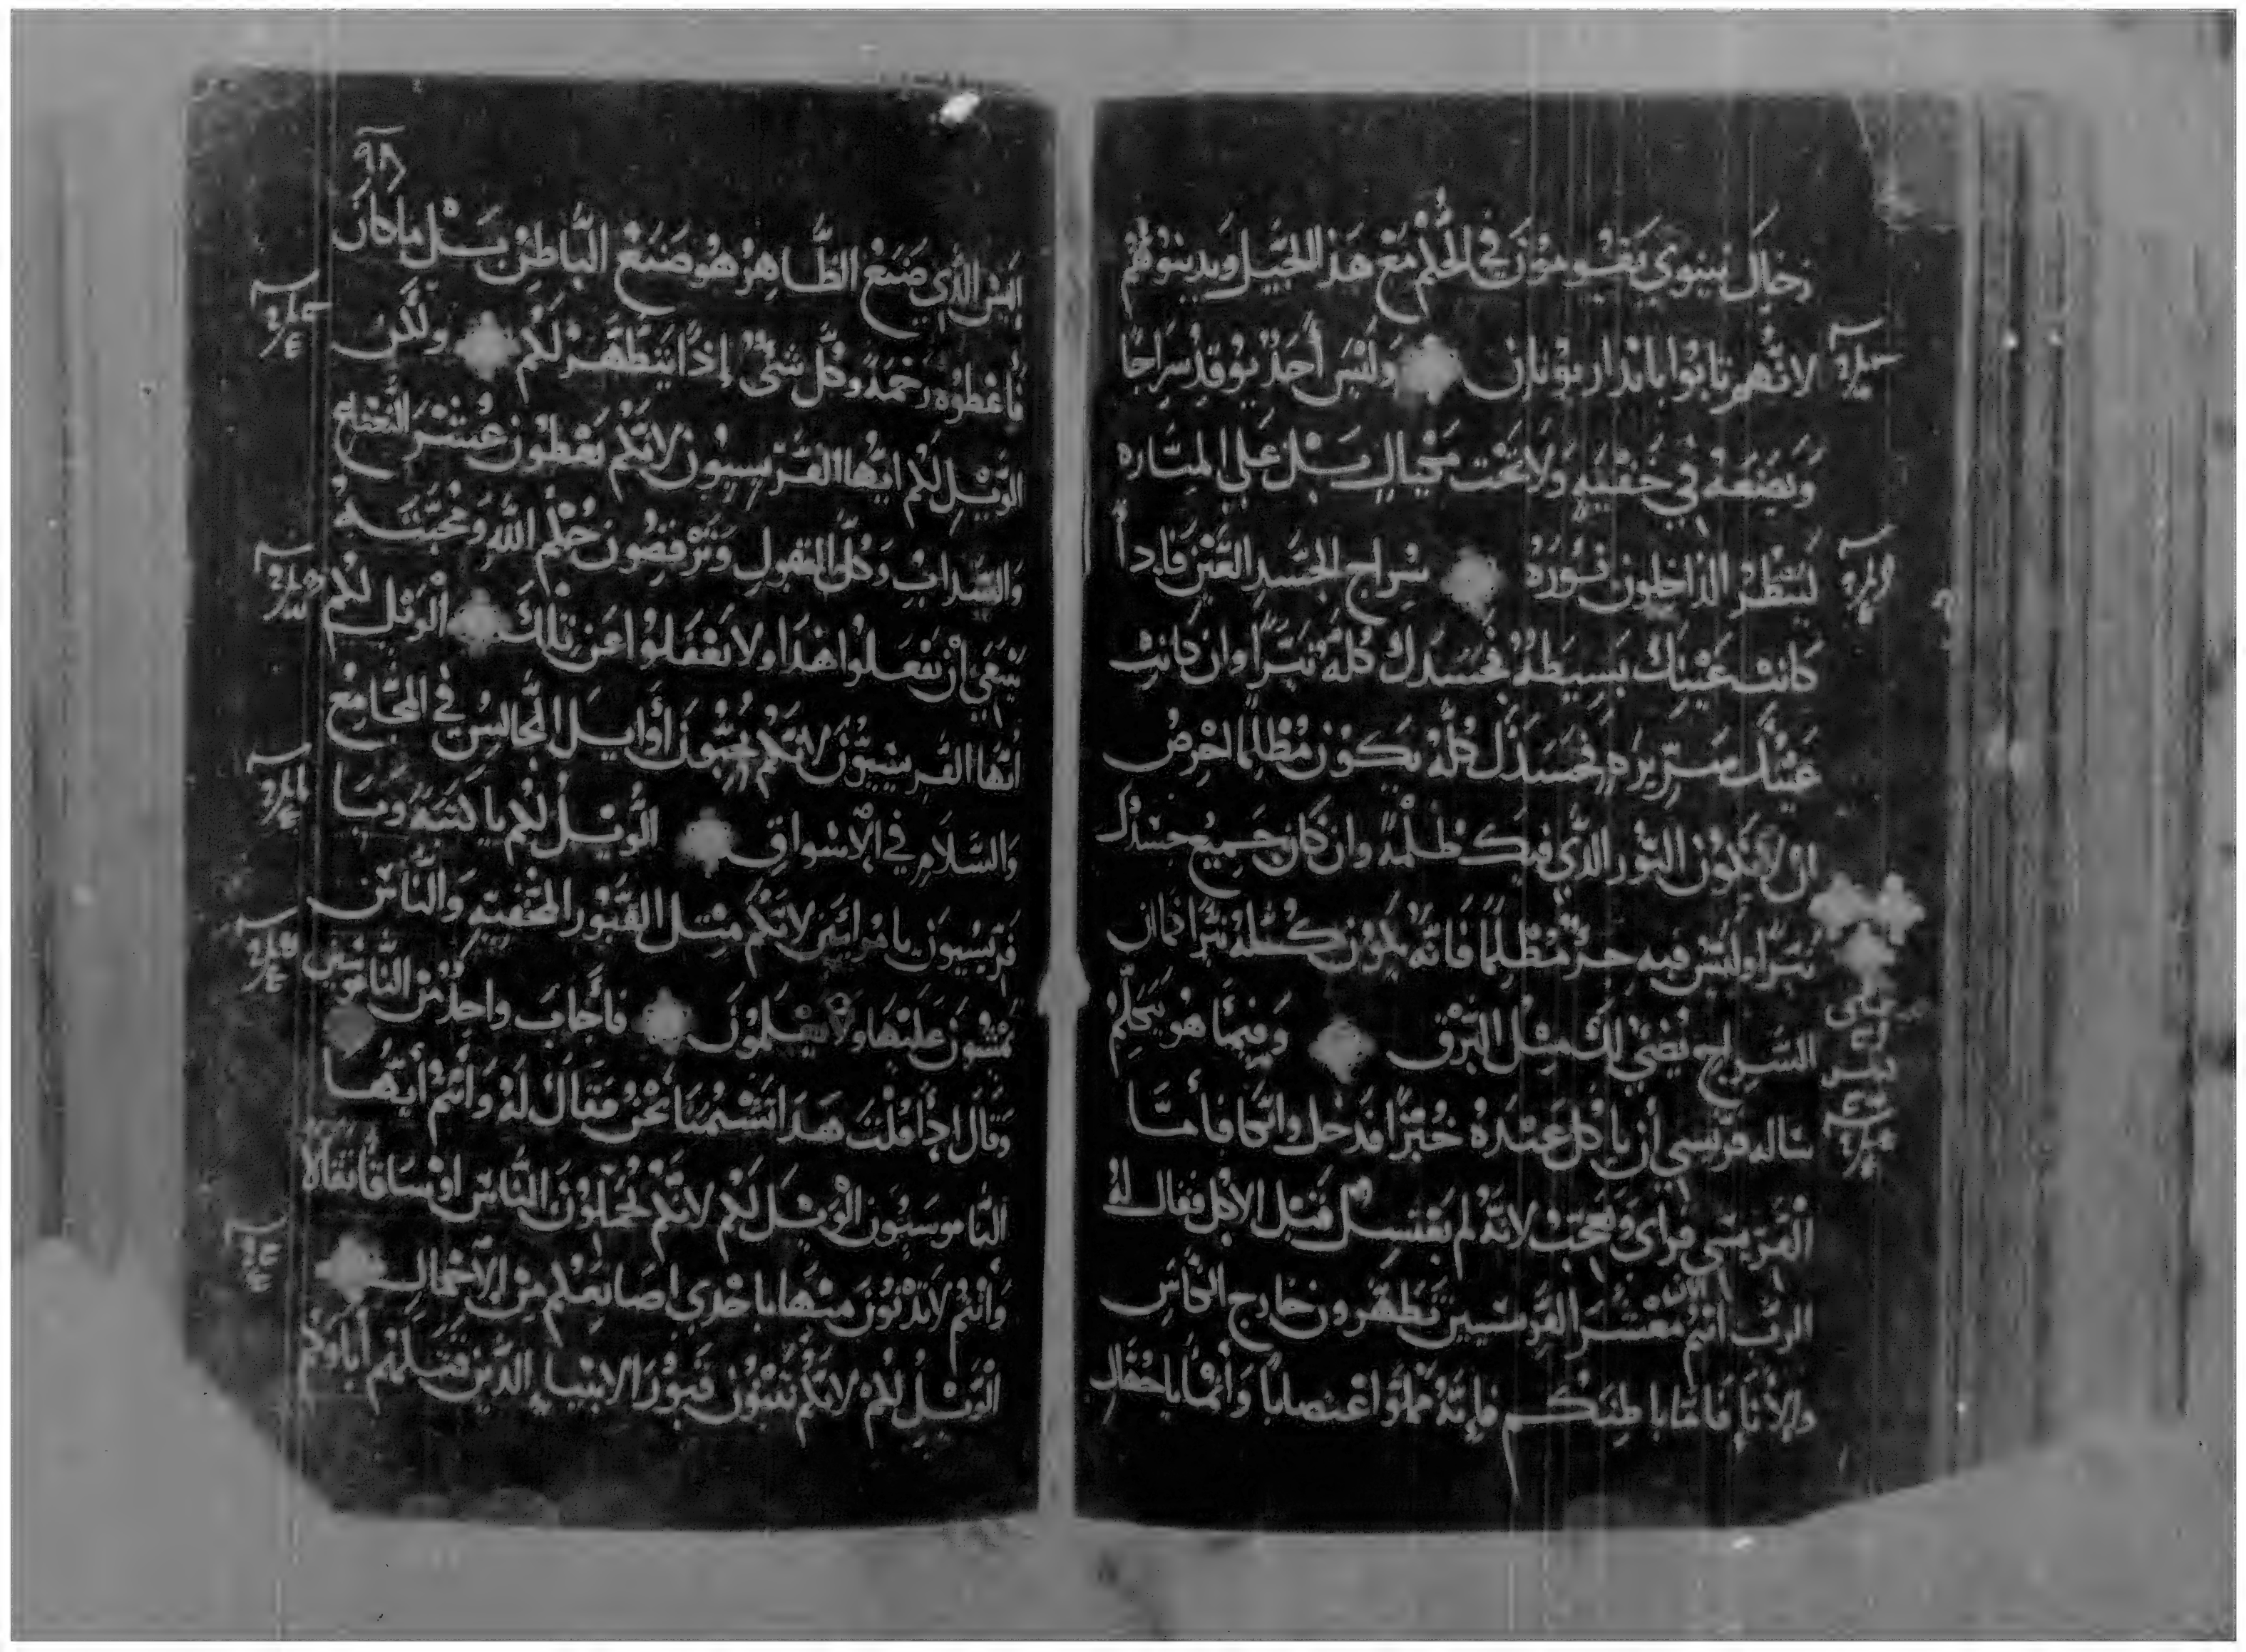 رجال نينوي يقومون في الحكم مع هذا الجيل ويدينوهم
لانهم تابوا بانذار يونان وليس أحد يوقد سراجا
ويضعه في خفيه ولا تحت مكيال بل على المناره
لينظر الداخلون نوره سراج الجسد العين فاذا
كانت عينك بسيطة فجسدك كله نيرا وان كانت
عينك شريره فجسدك كله يكون مظلما احرص
ان لا يكون النور الذي فيك ظلمة وان كان جميع جسدك
نيرا وليس فيه جزء مظلما فانه يكون كله نيرا كما ان
السراج يضي لك مثل البرق وفيما هو يتكلم
ساله فريسي أن ياكل عنده خبزا فدخل واتكا فأما
الفريسي فراى وتعجب لانه لم يغتسل قبل الاكل فقال له
الرب انتم الان معشر الفريسيين تطهرون خارج الكاس
والاناء فاما باطنكم فإنه مملوا اغتصابا وانما ياجهال
٩٨
اليس الذي صنع الظاهر هو صنع الباطن بل ما كان
فأعطوه رحمة وكل شئ إذا يتطهر لكم ولكن
الويل لكم ايها الفريسيون لانكم تعطون عشر النعناع
والسداب وكل البقول وترفضون حكم الله ومحبته
ينبغي أن تفعلوا هذا ولا تغفلوا عن تلك الويل لكم
أيها الفريسيون لانكم تحبون أوايل المجالس في المجامع
والسلام في الاسواق الويل لكم يا كتبة ويا
فريسيون يا مرائين لانكم مثل القبور المخفيه والناس
يمشون عليها ولا يعلمون فأجاب واحد من الناموسيين
وقال إذا قلت هذا تشتمنا نحن فقال له وأنتم أيها
الناموسيون الويل لكم لانكم تحملون الناس اوساقا ثقالا
وأنتم لا تدنون منها باحدي اصابعكم من الاحمال
الويل لكم لانكم تبنون قبور الانبياء الذين قتلهم أباوكم